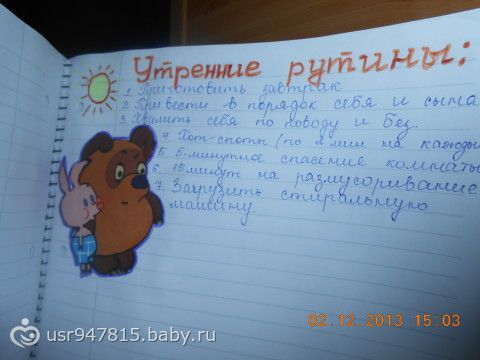 Утренние рутины:
1. Приготовить завтрак
2. Привести в порядок себя и сына
3. Хвалить себя по поводу и без.
4. Хот-споты (по 2 мин. на каждый
5. 5-минутное спасение комнаты
6. 15 минут на размусоривание
7. Загрузить стиральную
машину.
02.12.2013 15:03
usr947815.baby.ru